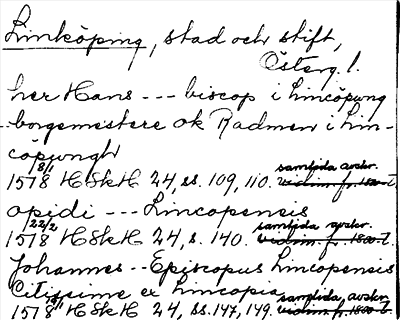 Linköping, stad och stift,
Österg l.
her Hans --- biscop i Lincöpung
borgemestere ok Radmen i Lin-
cöpungh
1578 8/1 HSkH 24, ss. 109, 110. samtida avskr.
opidi --- Lincopensis
1578 22/2 HSkH 24, s. 140. samtida avskr.
Johannes -- Episcopus Lincopensis
Citissime ex Lincopia
1578 HSkH 24, ss. 147, 149. samtida avskr.